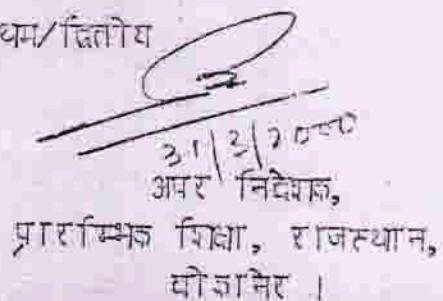 थम/द्वितीय
31/3/2000
अपर निदेशक,
प्रारम्भिक शिक्षा, राजस्थान,
बीकानेर ।